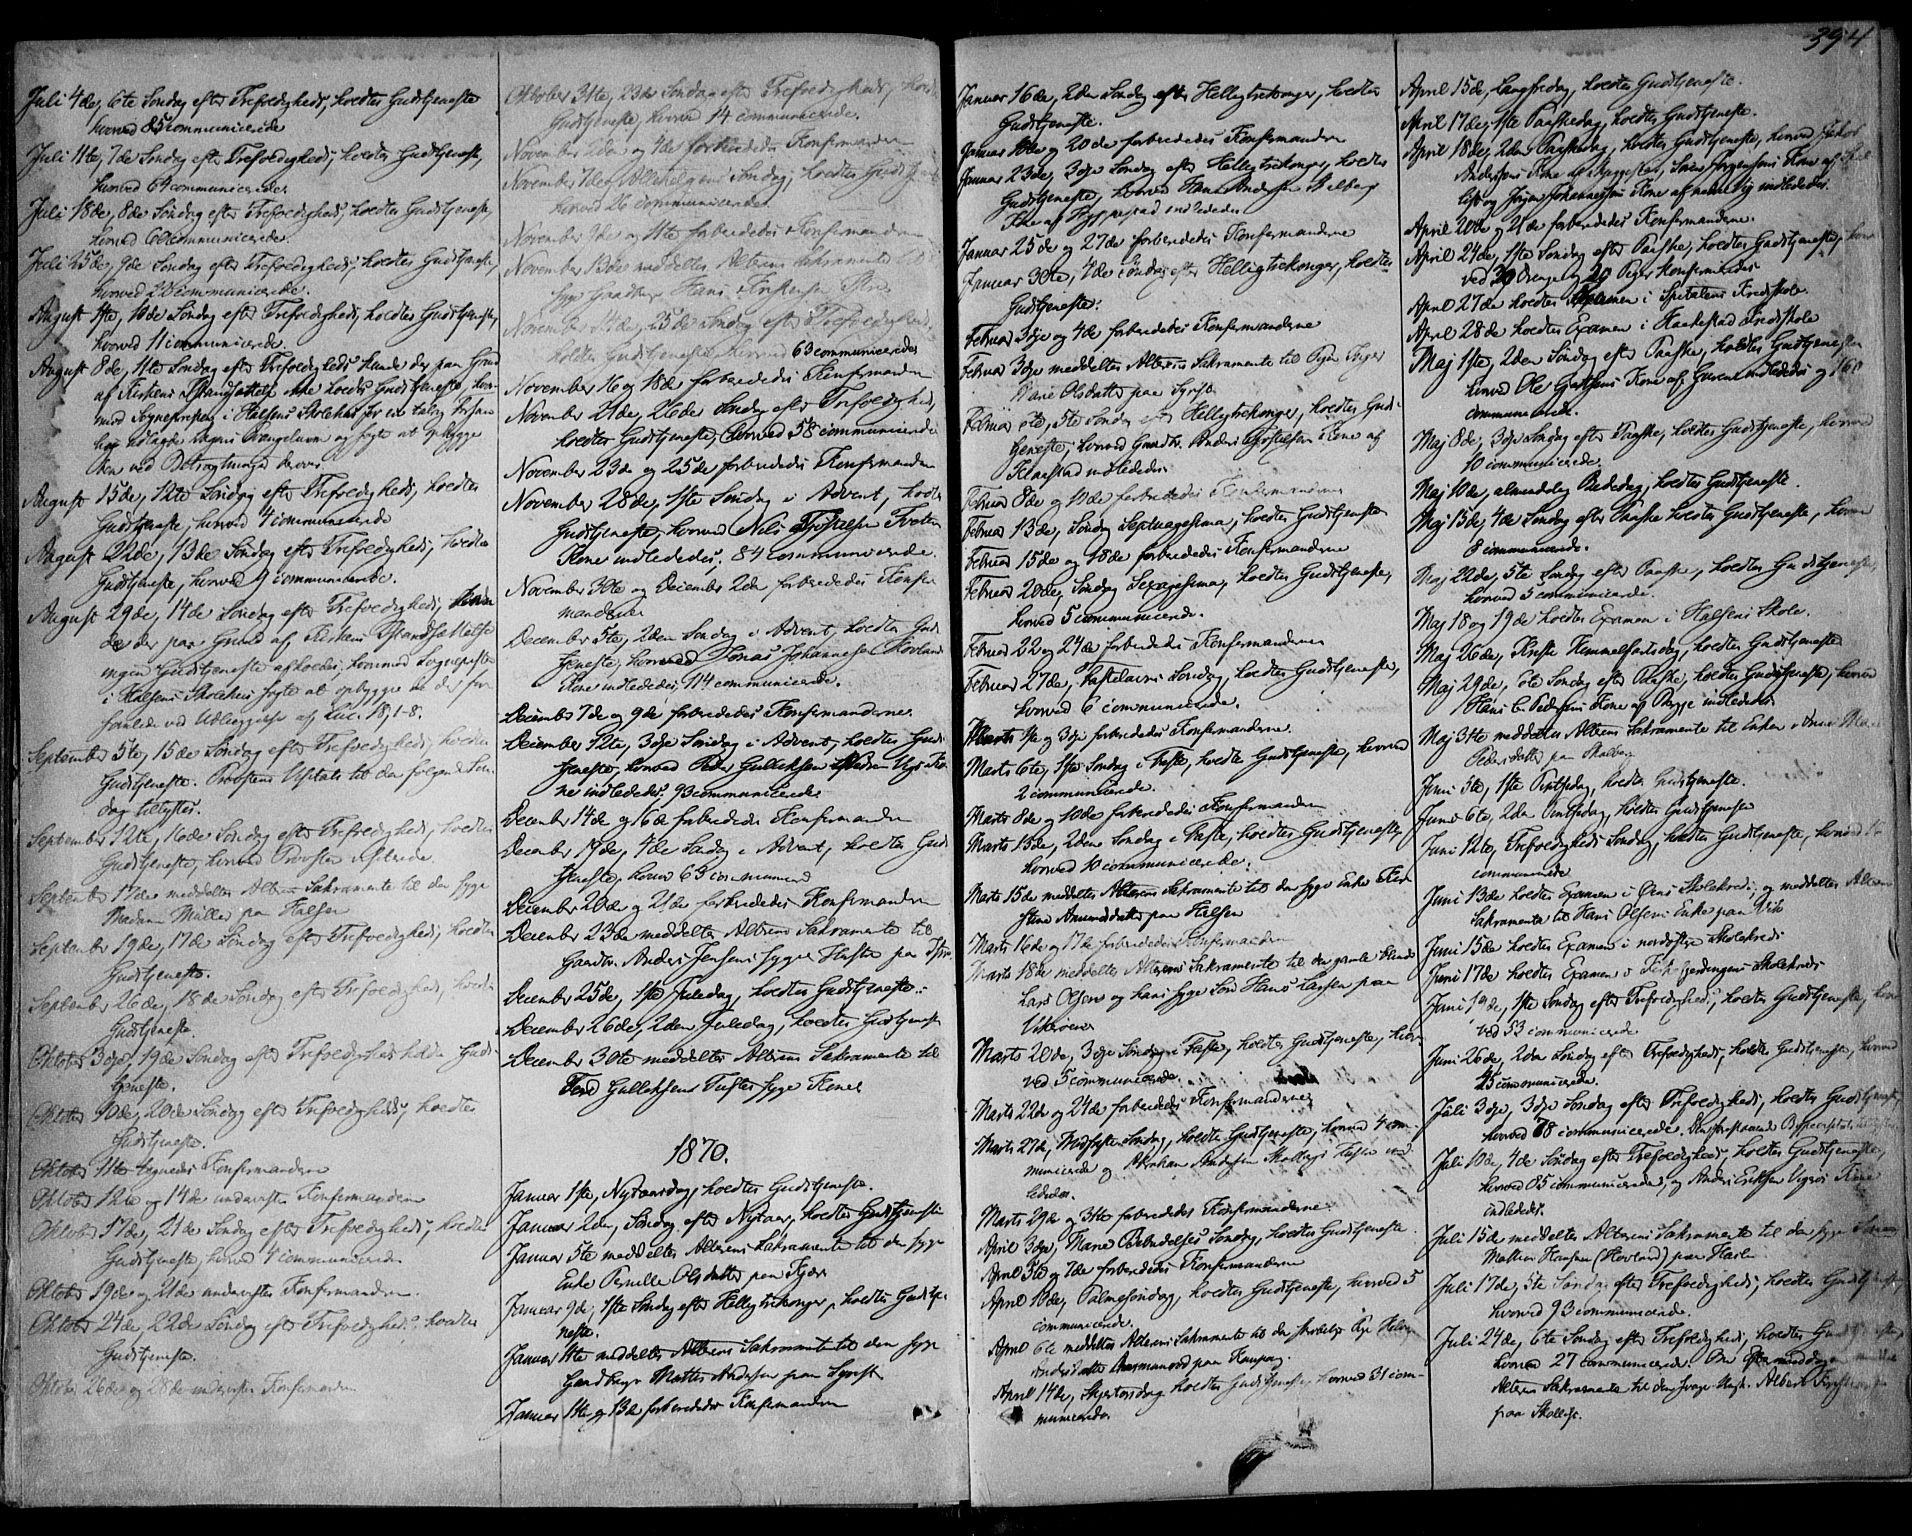 394
Juli 4de, 6te Søndag efter Trefoldighed, holdtes Gudstjeneste
hvorved 85 communicerede
Juli 11te, 7de Søndag efter Trefoldighed, holdtes Gudstjeneste,
hvorved 64 communicerede.
Juli 18de, 8de Søndag efter Trefoldighed, holdtes Gudstjeneste,
hvorved 60 communicerede.
Juli 25de, 9de Søndag efter Trefoldighed, holdtes Gudstjeneste,
hvorved 20 communicerede.
August 1ste, 10de Søndag efter Trefoldighed, holdtes Gudstjeneste,
hvorved 11 communicerede.
August 8de, 11te Søndag efter Trefoldighed kunde der paa Grund
af Kirkens Istandsættelse ikke holdes Gudstjeneste, hvor-
mod Sognepresten i Halsens Skolehus for en talrig Forsam
ling udlagde Dagens Evangelium og søgte at opbygge
den ved Betragtninger derover
August 15de, 12te Søndag efter Trefoldighed, holdtes
Gudstjeneste, hvorved 4 communicerede
August 22de, 13de Søndag efter Trefoldighed, holdtes
Gudstjeneste, hvorved 9 communicerede.
August 29de, 14de Søndag efter Trefoldighed,
de der paa Grund af Kirkens Istandsættelse
ingen Gudstjeneste afholdes, hvormod Sognepresten
i Halsens Skolehus søgte at opbygge de der for
samlede ved Udlæggelse af Luc. 18, 1-8.
September 5te, 15de Søndag efter Trefoldighed, holdtes
Gudstjeneste. Provstens Visitats til den følgende Søn-
dag tillystes.
September 12te, 16de Søndag efter Trefoldighed, holdtes
Gudstjeneste, hvorved Provsten visiterede.
September 17de meddeltes Alterens Sakramente til den syge
Madam Müller paa Halsen
September 19de, 17de Søndag efter Trefoldighed, holdtes
Gudstjeneste.
September 26de, 18de Søndag efter Trefoldighed, holdtes
Gudstjeneste
Oktober 3dje, 19de Søndag efter Trefoldighed holdtes Guds-
tjeneste.
Oktober 10de, 20de Søndag efter Trefoldighed, holdtes
Gudstjeneste.
Oktober 11te tegnedes Konfirmanderne
Oktober 12te og 14de undervistes Konfirmanderne
Oktober 17de, 21de Søndag efter Trefoldighed, holdtes
Gudstjeneste, hvorved 4 communicerede
Oktober 19de og 21de undervistes Konfirmanderne.
Oktober 24de, 22de Søndag efter Trefoldighed, holdtes
Gudstjeneste.
Oktober 26de og 28de undervistes Konfirmanderne
Oktober 31te, 23de Søndag efter Trefoldighed, holdtes
Gudstjeneste, hvorved 14 communicerede.
November 2den og 4de forberedes Konfirmanderne
November 7de, Allehelgens Søndag, holdtes Gudstjeneste
hvorved 26 communicerede.
November 9de og 11te forberedes Konfirmanderne
November 13de meddeltes Alterens Sakramente til den
syge Gaardbruger Hans
November 14de, 25de Søndag efter Trefoldighed,
holdtes Gudstjeneste, hvorved 63 communicerede
November 16 og 18de forberedes Konfirmanderne
November 21de, 26de Søndag efter Trefoldighed,
holdtes Gudstjeneste, hvorved 58 communicerede
November 23de og 25de forberedes Konfirmanderne
November 28de, 1ste Søndag i Advent, holdtes
Gudstjeneste, hvorved Nils
Kone indlededes. 84 communicerede.
November 30te og December 2den forberedes Konfir
manderne
December 5te, 2den Søndag i Advent, holdtes Guds
tjeneste, hvorved Jonas Johannesen Hovlands
Kone indlededes, 114 communicerede.
December 7de og 9de forberedes Konfirmanderne.
December 12te, 3dje Søndag i Advent, holdtes Guds
tjeneste, hvorved Peder Gulliksen Ko-
ne indlededes. 93 communicerede
December 14de og 16de forberedes Konfirmanderne
December 19de, 4de Søndag i Advent, holdtes Guds
tjeneste, hvorved 63 communicerede
December 20de og 21de forberedes Konfirmanderne
December 23de meddeltes Alterens Sakramente til
Gaardbr. Anders Jensens syge Hustru paa
December 25de, 1ste Juledag, holdtes Gudstjeneste.
December 26de, 2den Juledag, holdtes Gudstjeneste
December 30te meddeltes Alterens Sakramente til
Gulliksens Tufte syge Kone
1870.
Januar 1ste, Nytaarsdag, holdtes Gudstjeneste.
Januar 2den, Søndag efter Nytaar, holdtes Gudstjeneste
Januar 5te meddeltes Alterens Sakramente til den syge
Enke Pernille Olsdatter paa Kjær
Januar 9de, 1ste Søndag efter Helligtrekonger, holdtes Gudstje-
neste.
Januar 11te meddeltes Alterens Sakramente til den syge
Gaardbruger Mathis Andersen paa Syrist
Januar 11te og 13de forberedes Konfirmanderne
Januar 16de, 2den Søndag efter Helligtrekonger, holdtes
Gudstjeneste.
Januar 18de og 20de forberedes Konfirmanderne
Januar 23de, 3dje Søndag efter Helligtrekonger, holdtes
Gudstjeneste, hvorved Hans Andersen
Kone af indlededes
Januar 25de og 27de forberedes Konfirmanderne
Januar 30te, 4de Søndag efter Helligtrekonger, holdtes
Gudstjeneste.
Februar 3dje og 4de forberedes Konfirmanderne
Februar 3dje meddeltes Alterens Sakramente til Pigen Inger
Marie Olsdatter paa Syrist
Februar 6te, 5te Søndag efter Helligtrekonger, holdtes Guds-
tjeneste, hvorved Gaardbr. Anders Kone af
indlededes
Februar 8de og 10de forberedes Konfirmanderne
Februar 13de, Søndag Septuagesima, holdtes Gudstjeneste
Februar 15de og 18de forberedes Konfirmanderne
Februar 20de, Søndag Sexagesima, holdtes Gudstjeneste,
hvorved 5 communicerede.
Februar 22 og 24de forberedes Konfirmanderne
Februar 27de, Fastelavns Søndag, holdtes Gudstjeneste,
hvorved 6 communicerede.
Marts 1ste og 3dje forberedes Konfirmanderne.
Marts 6te, 1ste Søndag i Faste, holdtes Gudstjeneste, hvorved
2 communicerede.
Marts 8de og 10de forberedes Konfirmanderne
Marts 13de, 2den Søndag i Faste, holdtes Gudstjeneste,
hvorved 10 communicerede.
Marts 15de meddeltes Alterens Sakramente til den syge Enke Kir-
stine Amundsdatter paa Halsen
Marts 16de og 17de forberedes Konfirmanderne
Marts 18de meddeltes Alterens Sakramente til den gamle blinde
Lars Olsen og hans syge Søn Hans Larsen paa
Vikerøen
Marts 20de, 3dje Søndag i Faste, holdtes Gudstjeneste, hvor-
ved 5 communicerede
Marts 22de og 24de forberedes Konfirmanderne
Marts 27de, Midfaste Søndag, holdtes Gudstjeneste, hvorved 4 com-
municerede og Abraham Andersen Hustru ind-
lededes.
Marts 29de og 31te forberedes Konfirmanderne
April 3dje, Mariæ Bebudelses Søndag, holdtes Gudstjeneste.
April 5te og 7de forberedes Konfirmanderne
April 10de, Palmesøndag, holdtes Gudstjeneste, hvorved 5
communicerede.
April 6te meddeltes Alterens Sakramente til den Pige Helene
Andersdatter paa Kaupang.
April 14de, Skjærtorsdag holdtes Gudstjeneste, hvorved 31 com-
municerede
April 15de, Langfredag, holdtes Gudstjeneste.
April 17de, 1ste Paaskedag, holdtes Gudstjeneste.
April 18de, 2den Paaskedag, holdtes Gudstjeneste, hvorved Jakob
Andersens Kone af Lars Jørgensens Kone af
og Jørgen Johannesens Kone af indlededes.
April 20de og 21de forberedes Konfirmanderne.
April 24de, 1ste Søndag efter Paaske, holdtes Gudstjeneste, hvor
ved 30 Drenge og 20 Piger konfirmeredes
April 27de holdtes Examen i Spitalens Kredsskole.
April 28de holdtes Examen i Haakestad Kredsskole
Maj 1ste, 2den Søndag efter Paaske, holdtes Gudstjenesten
hvorved Ole Kone af indlededes og 160
communicerede.
Maj 8de, 3dje Søndag efter Paaske, holdtes Gudstjeneste, hvorved
10 communicerede.
Maj 10de, almindelig Bededag, holdtes Gudstjeneste.
Maj 15de, 4de Søndag efter Paaske holdtes Gudstjeneste, hvorved
8 communicerede.
Maj 22de, 5te Søndag efter Paaske, holdtes Gudstjeneste,
hvorved 5 communicerede.
Maj 18 og 19de holdtes Examen i Halsens Skole.
Maj 26de, Kristi Himmelfartsdag, holdtes Gudstjeneste
Maj 29de, 6te Søndag efter Paaske, holdtes Gudstjeneste, hvorved
Hans C. Pedersens Kone af indlededes
Maj 31te meddeltes Alterens Sakramente til Enken
Pedersdatter paa
Juni 5te, 1ste Pintsedag, holdtes Gudstjeneste.
Juni 6te, 2den Pintsedag, holdtes Gudstjeneste
Juni 12te, Trefoldigheds Søndag, holdtes Gudstjeneste, hvorved
communicerede
Juni 13de holdtes Examen i Øens Skolekreds, og meddeltes Alterens
Sakramente til Hans Olsens Enke paa Vik
Juni 15de holdtes Examen i nordøstre Skolekreds
Juni 17de holdtes Examen i Skolekreds
Juni 19de, 1ste Søndag efter Trefoldighed, holdtes Gudstjeneste, hvor
ved 53 communicerede
Juni 26de, 2den Søndag efter Trefoldighed, holdtes Gudstjeneste, hvorved
45 communicerede.
Juli 3dje, 3dje Søndag efter Trefoldighed, holdtes Gudstjeneste,
hvorved 78 communicerede. Den forestaaende Bispevisitats
Juli 10de, 4de Søndag efter Trefoldighed, holdtes Gudstjeneste,
hvorved 85 communicerede, og Anders Eriksen Kone
indlededes.
Juli 15de meddeltes Alterens Sakramente til den syge
Mathis Hansen (Hovland) paa
Juli 17de, 5te Søndag efter Trefoldighed, holdtes Gudstjeneste,
hvorved 93 communicerede.
Juli 24de, 6te Søndag efter Trefoldighed, holdtes Gudstjeneste
hvorved 27 communicerede. Om Eftermiddagen meddeltes
Alterens Sakramente til den svage Ungk. Albert
paa